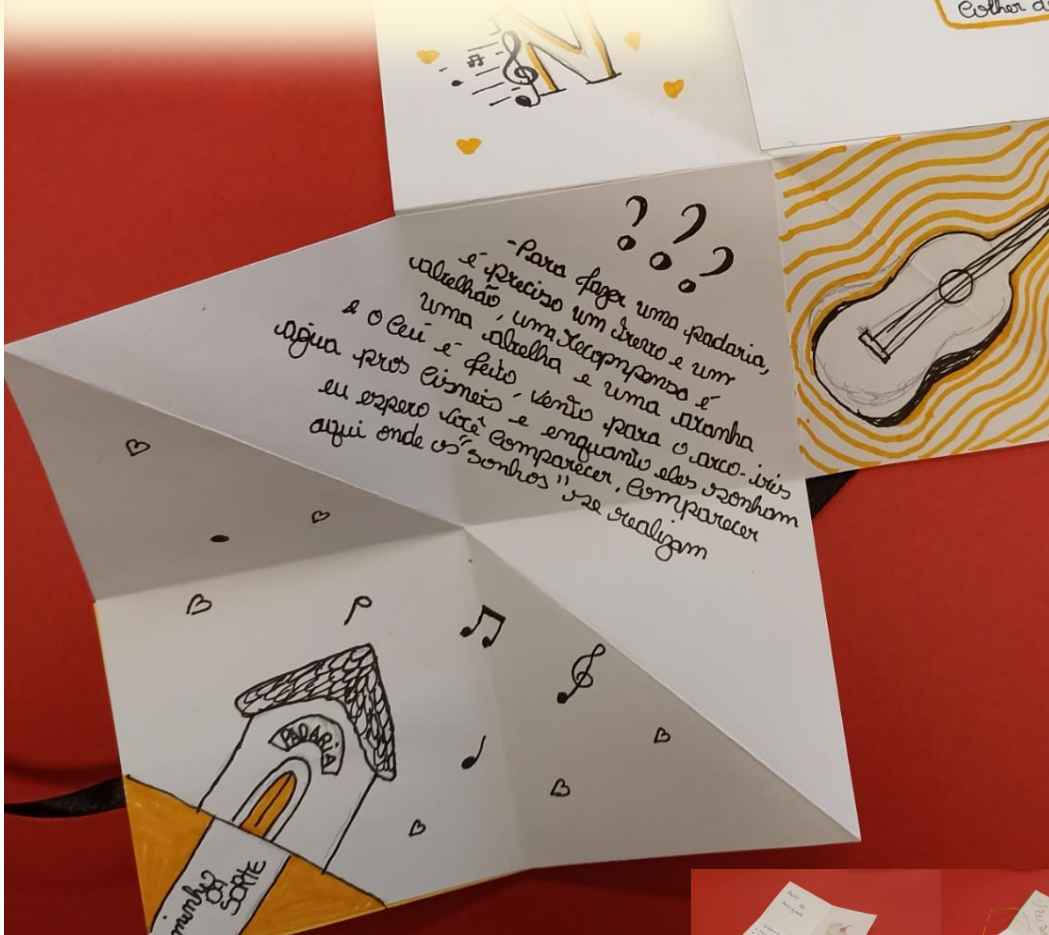 Colher d
N
???
-Para fazer uma padaria,
é preciso um trevo e um
abelhão, uma recompensa é
uma abelha e uma aranha
e o céu é feito, vento para o arco-íris
água pros cisneis e enquanto eles sonham
eu espero você comparecer, comparecer
aqui onde os "sonhos" se realizam
PADARIA
minho
DA
SORTE